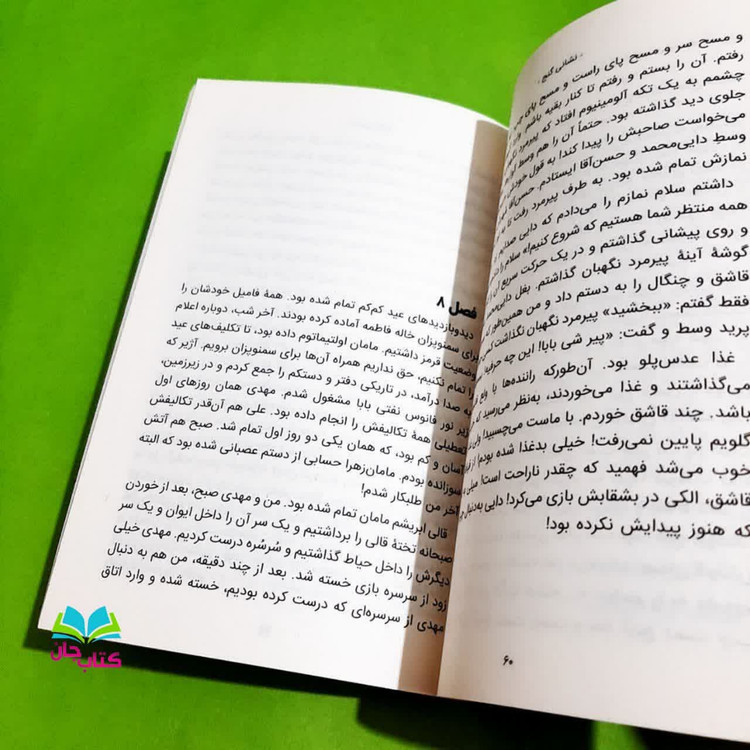 ۰ نشانی گنج ۰
و مسح سر و مسح پای راست و مسح پای چپ
رفتم. آن را بستم و رفتم تا کنار بقیه باشم
چشمم به یک تکه آلومینیوم افتاد که پیرمرد
جلوی دید گذاشته بود. حتماً آن را هم وسط
می‌خواست صاحبش را پیدا کند! به قول خودش
وسط دایی‌محمد و حسن‌آقا ایستادم. حسن‌آقا
نمازش تمام شده بود. به طرف پیرمرد رفت تا
داشتم سلام نمازم را می‌دادم که دایی صدایم
همه منتظر شما هستیم که شروع کنیم!» سلام را
و روی پیشانی گذاشتم و در یک حرکت سریع آن را
گوشهٔ آینهٔ پیرمرد نگهبان گذاشتم. بغل دایی
قاشق و چنگال را به دستم داد و من همین‌طور که
فقط گفتم: «ببخشید» پیرمرد نگهبان نگذاشت
پرید وسط و گفت: «پیر شی بابا! این چه حرفیه
غذا عدس‌پلو بود. آن‌طورکه راننده‌ها با ولع
می‌گذاشتند و غذا می‌خوردند، به‌نظر می‌رسید که
باشد. چند قاشق خوردم. با ماست می‌چسبید! ولی
گلویم پایین نمی‌رفت! خیلی بدغذا شده بودم! از
خوب می‌شد فهمید که چقدر ناراحت است!
قاشق، الکی در بشقابش بازی می‌کرد! دایی به‌دنبال
که هنوز پیدایش نکرده بود!
۶۰
فصل ۸
دیدوبازدیدهای عید کم‌کم تمام شده بود. همهٔ فامیل خودشان را
برای سمنوپزان خاله فاطمه آماده کرده بودند. آخر شب، دوباره اعلام
وضعیت قرمز داشتیم. مامان اولتیماتوم داده بود، تا تکلیف‌های عید
را تمام نکنیم، حق نداریم همراه آن‌ها برای سمنوپزان برویم. آژیر که
به صدا درآمد، در تاریکی دفتر و دستکم را جمع کردم و در زیرزمین،
زیر نور فانوس نفتی بابا مشغول شدم. مهدی همان روزهای اول
تعطیلی همهٔ تکالیفش را انجام داده بود. علی هم آن‌قدر تکالیفش
آسان و کم بود، که همان یکی دو روز اول تمام شد. صبح هم آتش
سوزانده بودم. مامان‌زهرا حسابی از دستم عصبانی شده بود که البته
آخر من طلبکار شدم!
قالی ابریشم مامان تمام شده بود. من و مهدی صبح، بعد از خوردن
صبحانه تختهٔ قالی را برداشتیم و یک سر آن را داخل ایوان و یک سر
دیگرش را داخل حیاط گذاشتیم و سُرسُره درست کردیم. مهدی خیلی
زود از سرسره بازی خسته شد. بعد از چند دقیقه، من هم به دنبال
مهدی از سرسره‌ای که درست کرده بودیم، خسته شده و وارد اتاق
کتاب جان